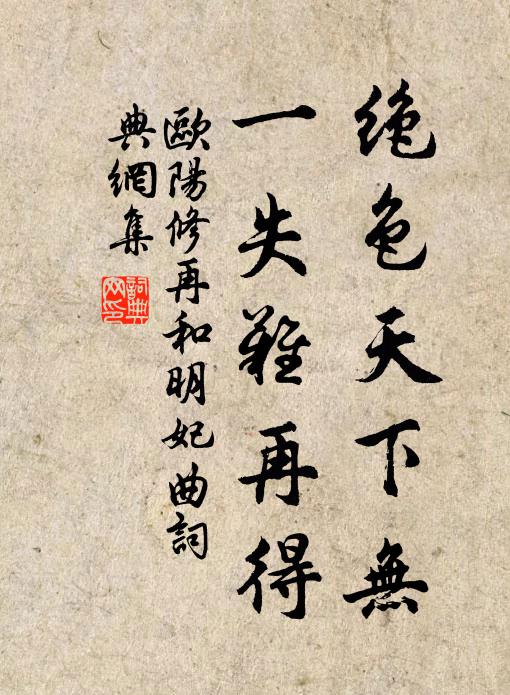 絶色天下無
一失難再得
歐陽修再和明妃曲詞
典網集
詞典
网印